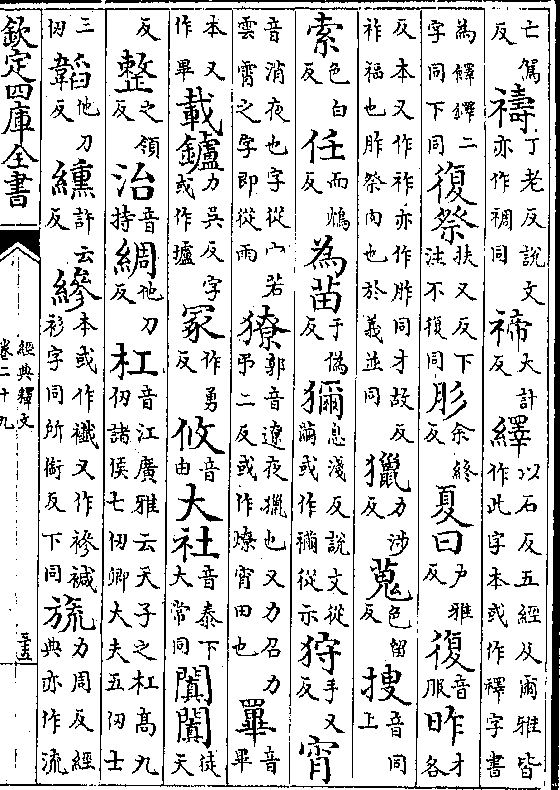 亡駕反禱丁老反說文亦作禂同禘大計反繹以石反五經及爾雅皆作此字本或作釋字書
為鐸二字同下同復祭扶又反下注不復同肜余終反夏曰戶雅反復音服昨才各
反本又作祚亦作胙同才故反祚福也胙祭肉也於義並同獵力涉反蒐色留反搜音同上
索色白反任而鴆反為苗于偽反獮息淺反說文從繭或作從示狩手又反宵
音消夜也字從宀若雲霄之字即從雨獠郭音遼夜獵也又力召力弔二反或作燎宵田也罼音畢
本又作畢載鑪力吳反字或作壚冢作勇反攸音由大社音泰下大常同闐闐徒天
反整之領反治音持綢他刀反杠音江廣雅云天子之杠高九仞諸侯七仞卿大夫五仞士
三仞韜他刀反纁許云反縿本或作襳又作襂衫字同所銜反下同旒力周反經典亦作流
欽定四庫全書
經典釋文
卷二十九